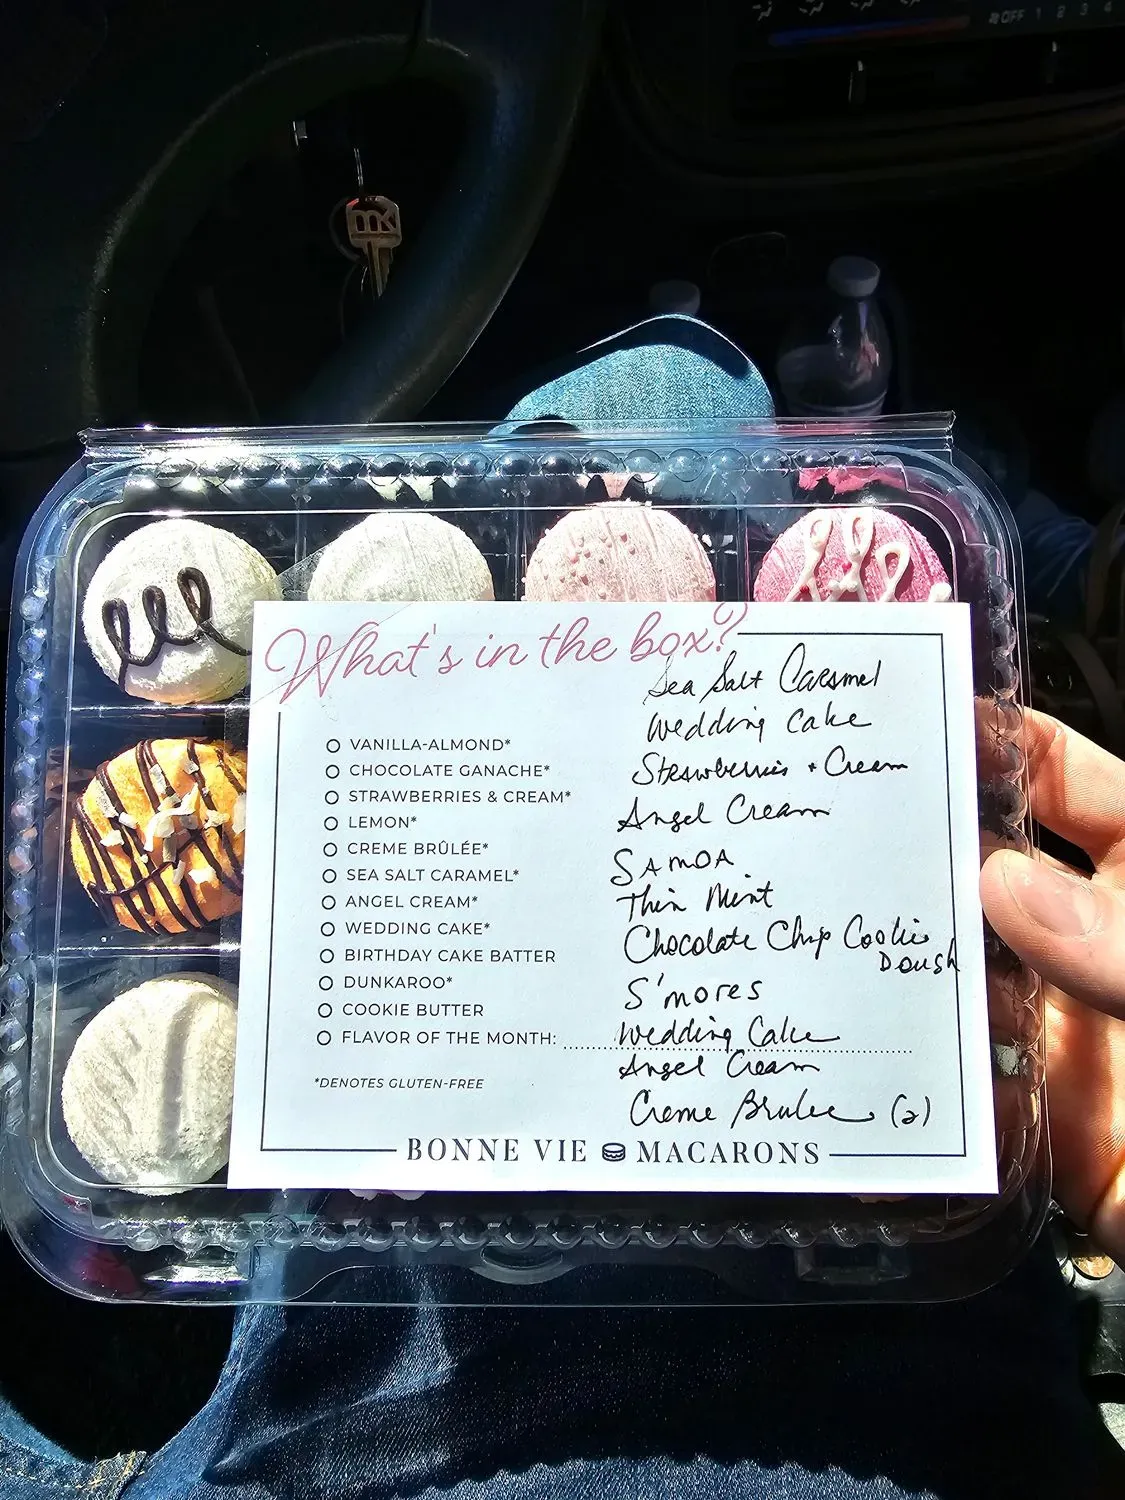 OFF 1 2 3 4
mk
What's in the box?
Sea Salt Caramel
Wedding Cake
Strawberries + Cream
Angel Cream
SAMOA
Thin Mint
Chocolate Chip Cookie
Dough
S'mores
Wedding Cake
Angel Cream
Creme Brulee (2)
VANILLA-ALMOND*
CHOCOLATE GANACHE*
STRAWBERRIES & CREAM*
LEMON*
CREME BRÛLÉE*
SEA SALT CARAMEL*
ANGEL CREAM*
WEDDING CAKE*
BIRTHDAY CAKE BATTER
DUNKAROO*
COOKIE BUTTER
FLAVOR OF THE MONTH:
*DENOTES GLUTEN-FREE
BONNE VIE MACARONS